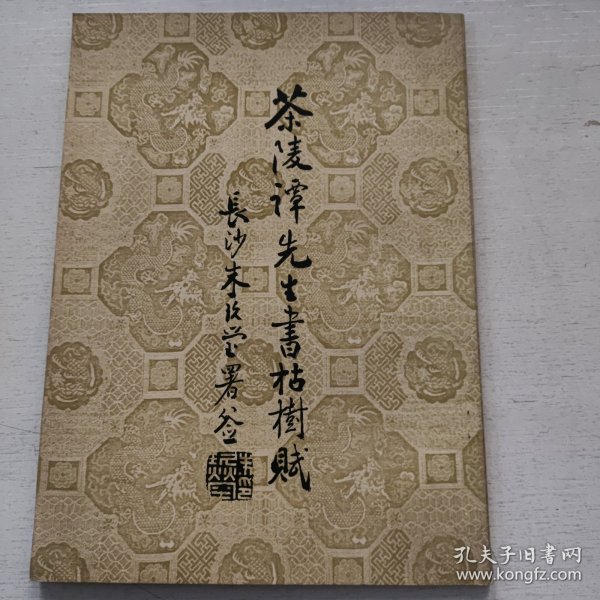 茶陵譚先生書枯樹賦
長沙朱玖瑩署签
孔夫子旧书网
www.kongfz.com